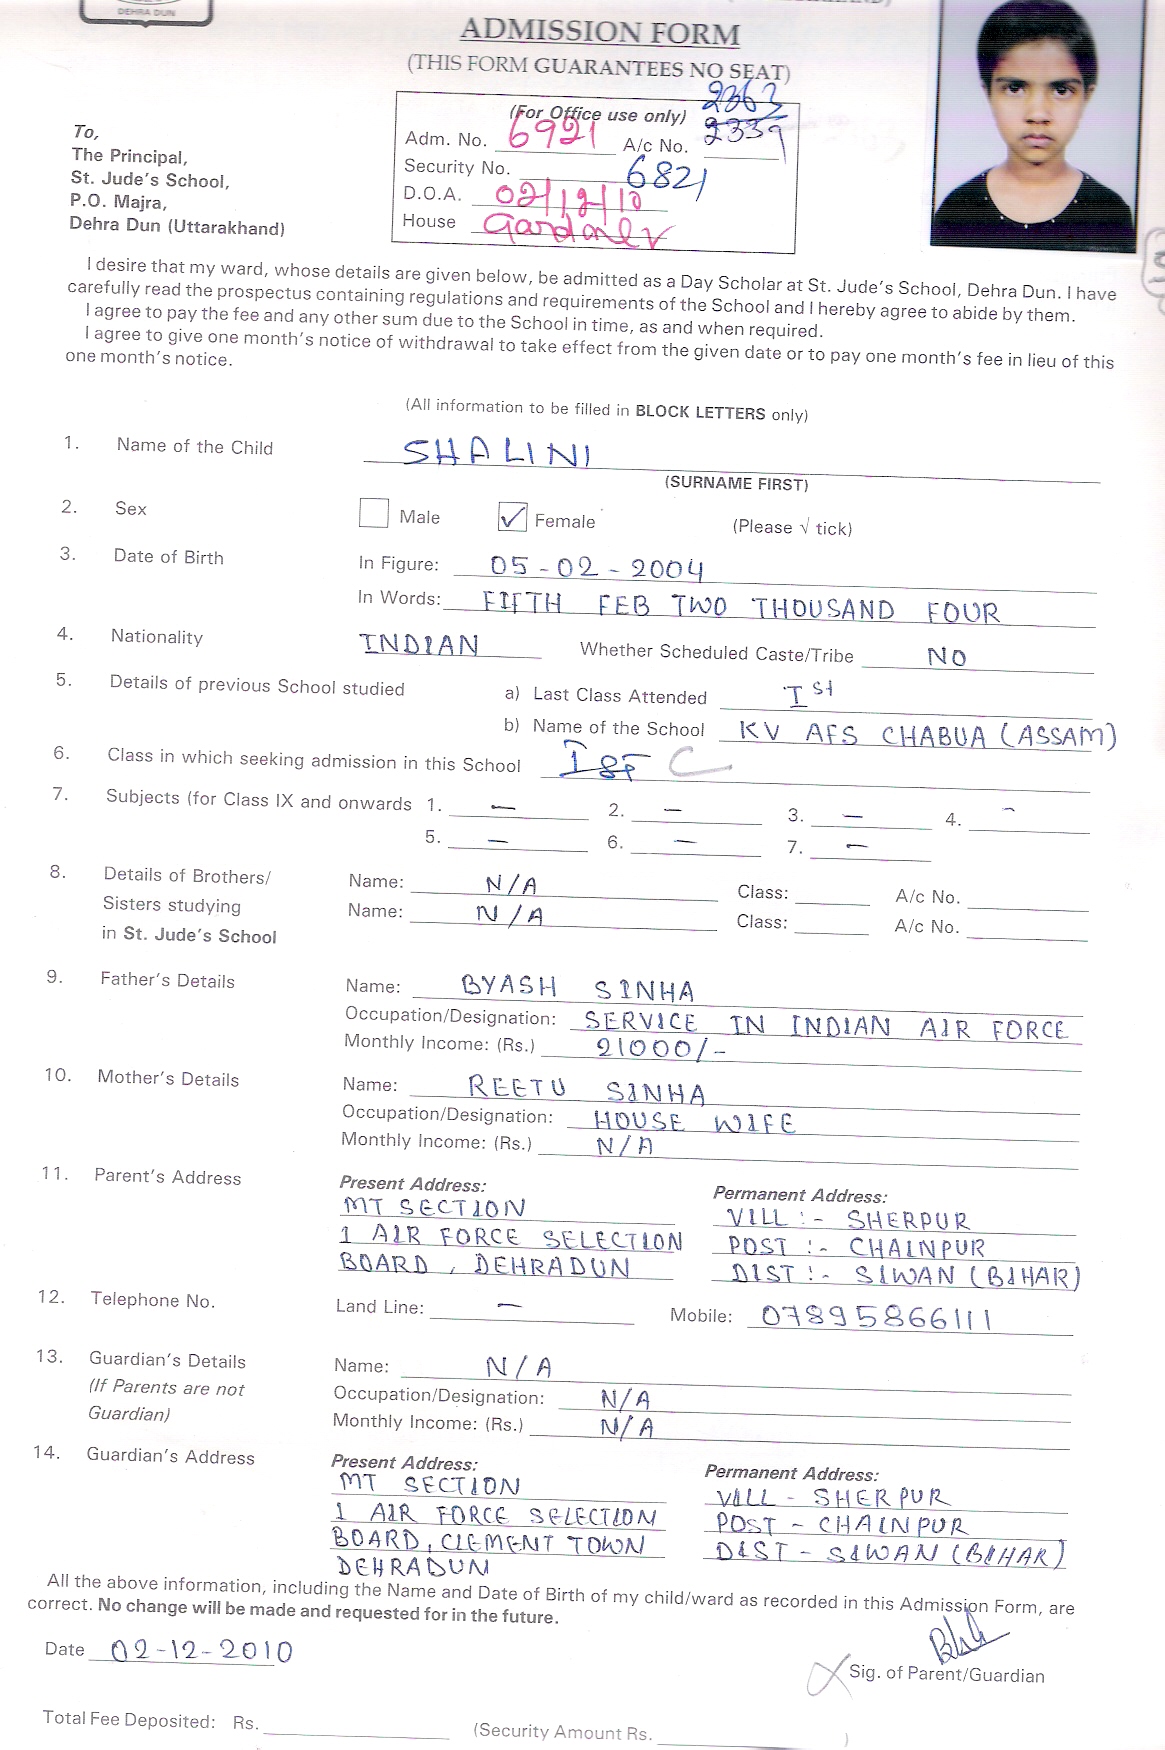 DEHRA DUN
ADMISSION FORM
(THIS FORM GUARANTEES NO SEAT)
(For Office use only) 2363
Adm. No. 6921 A/c No. 2339
Security No. 6821
D.O.A. 02/12/10
House
To,
The Principal,
St. Jude's School,
P.O. Majra,
Dehra Dun (Uttarakhand)
I desire that my ward, whose details are given below, be admitted as a Day Scholar at St. Jude's School, Dehra Dun. I have
carefully read the prospectus containing regulations and requirements of the School and I hereby agree to abide by them.
I agree to pay the fee and any other sum due to the School in time, as and when required.
I agree to give one month's notice of withdrawal to take effect from the given date or to pay one month's fee in lieu of this
one month's notice.
(All information to be filled in BLOCK LETTERS only)
1. Name of the Child SHALINI
(SURNAME FIRST)
2. Sex Male ✓ Female (Please √ tick)
3. Date of Birth In Figure: 05-02-2004
In Words: FIFTH FEB TWO THOUSAND FOUR
4. Nationality INDIAN Whether Scheduled Caste/Tribe NO
5. Details of previous School studied a) Last Class Attended I st
b) Name of the School KV AFS CHABUA (ASSAM)
6. Class in which seeking admission in this School I st C
7. Subjects (for Class IX and onwards 1. - 2. - 3. - 4. -
5. - 6. - 7. -
8. Details of Brothers/ Name: N/A Class: A/c No.
Sisters studying Name: N/A Class: A/c No.
in St. Jude's School
9. Father's Details Name: BYASH SINHA
Occupation/Designation: SERVICE IN INDIAN AIR FORCE
Monthly Income: (Rs.) 21000/-
10. Mother's Details Name: REETU SINHA
Occupation/Designation: HOUSE WIFE
Monthly Income: (Rs.) N/A
11. Parent's Address Present Address: Permanent Address:
MT SECTION VILL :- SHERPUR
1 AIR FORCE SELECTION POST :- CHAINPUR
BOARD, DEHRADUN DIST :- SIWAN (BIHAR)
12. Telephone No. Land Line: - Mobile: 07895866111
13. Guardian's Details Name: N/A
(If Parents are not Occupation/Designation: N/A
Guardian) Monthly Income: (Rs.) N/A
14. Guardian's Address Present Address: Permanent Address:
MT SECTION VILL - SHERPUR
1 AIR FORCE SELECTION POST - CHAINPUR
BOARD, CLEMENT TOWN DIST - SIWAN (BIHAR)
DEHRADUN
All the above information, including the Name and Date of Birth of my child/ward as recorded in this Admission Form, are
correct. No change will be made and requested for in the future.
Date 02-12-2010
Sig. of Parent/Guardian
Total Fee Deposited: Rs. (Security Amount Rs. )